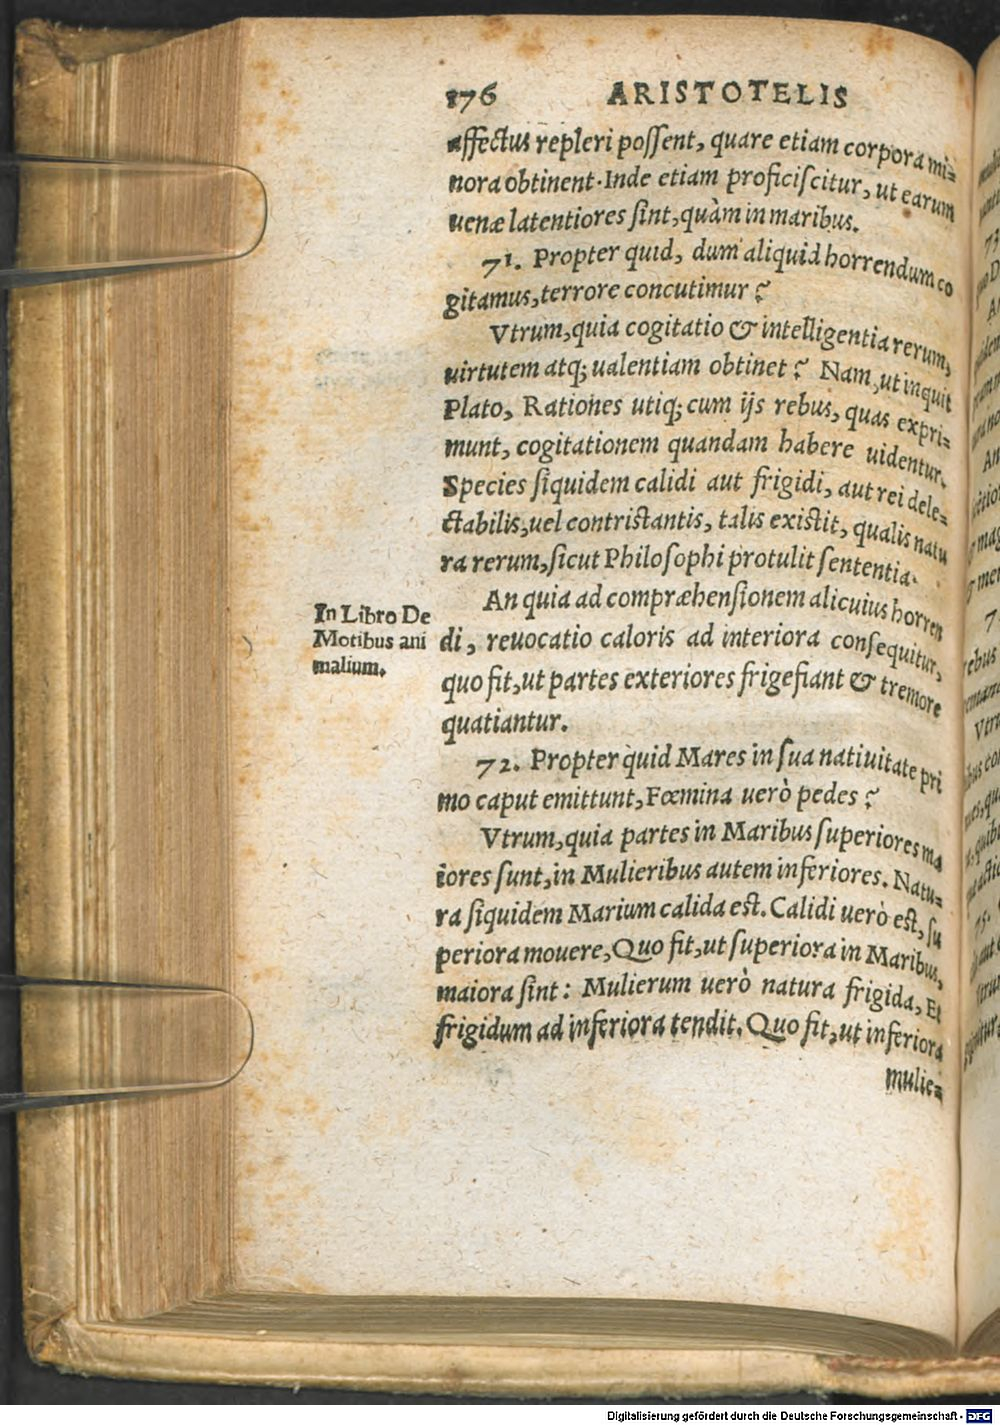 176 ARISTOTELIS
affectus repleri possent, quare etiam corpora mi=
nora obtinent. Inde etiam proficiscitur, ut earum
uenæ latentiores sint, quàm in maribus.
71. Propter quid, dum aliquid horrendum co
gitamus, terrore concutimur?
Vtrum, quia cogitatio & intelligentia rerum,
uirtutem atq; ualentiam obtinet? Nam, ut inquit
Plato, Rationes utiq; cum ijs rebus, quas expri=
munt, cogitationem quandam habere uidentur.
Species siquidem calidi aut frigidi, aut rei dele=
ctabilis, uel contristantis, talis existit, qualis natu
ra rerum, sicut Philosophi protulit sententia.
In Libro De
Motibus ani
malium.
An quia ad compræhensionem alicuius horren
di, reuocatio caloris ad interiora consequitur,
quo fit, ut partes exteriores frigefiant & tremore
quatiantur.
72. Propter quid Mares in sua natiuitate pri
mo caput emittunt, Fœmina uerò pedes?
Vtrum, quia partes in Maribus superiores ma
iores sunt, in Mulieribus autem inferiores. Natu=
ra siquidem Marium calida est. Calidi uerò est, su
periora mouere, Quo fit, ut superiora in Maribus,
maiora sint: Mulierum uerò natura frigida, Et
frigidum ad inferiora tendit. Quo fit, ut inferiora
mulie=
Digitalisierung gefördert durch die Deutsche Forschungsgemeinschaft - DFG